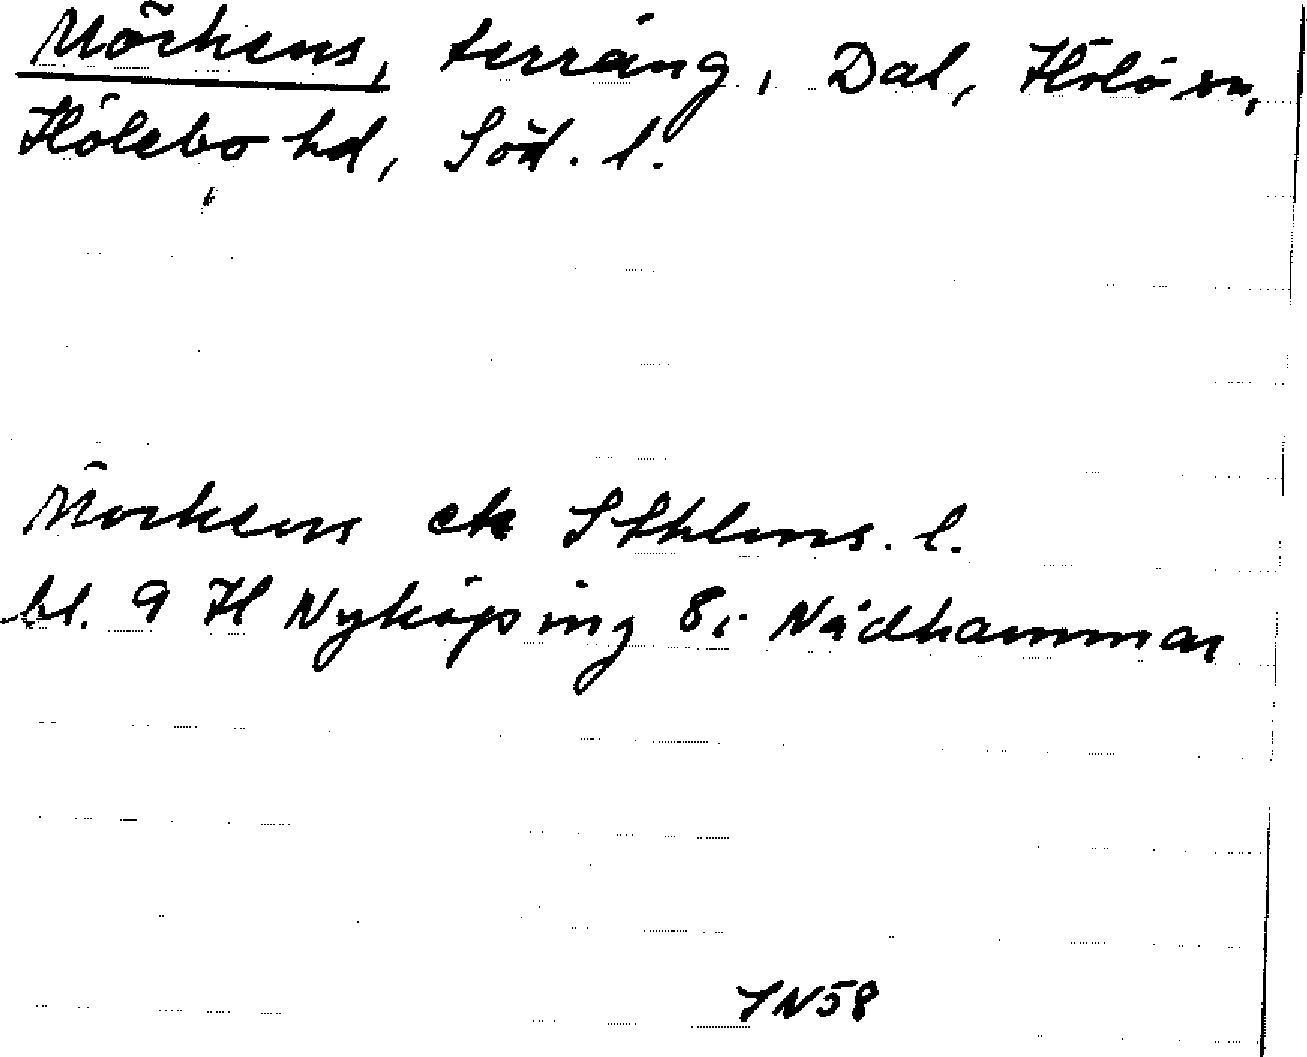 Mörkens, terräng, Dal, Hölö sn,
Hölebo hd, Söd. l.
Mörkens ek Sthlms. l.
bl. 9 H Nyköping 8i Nådhammar
IN58